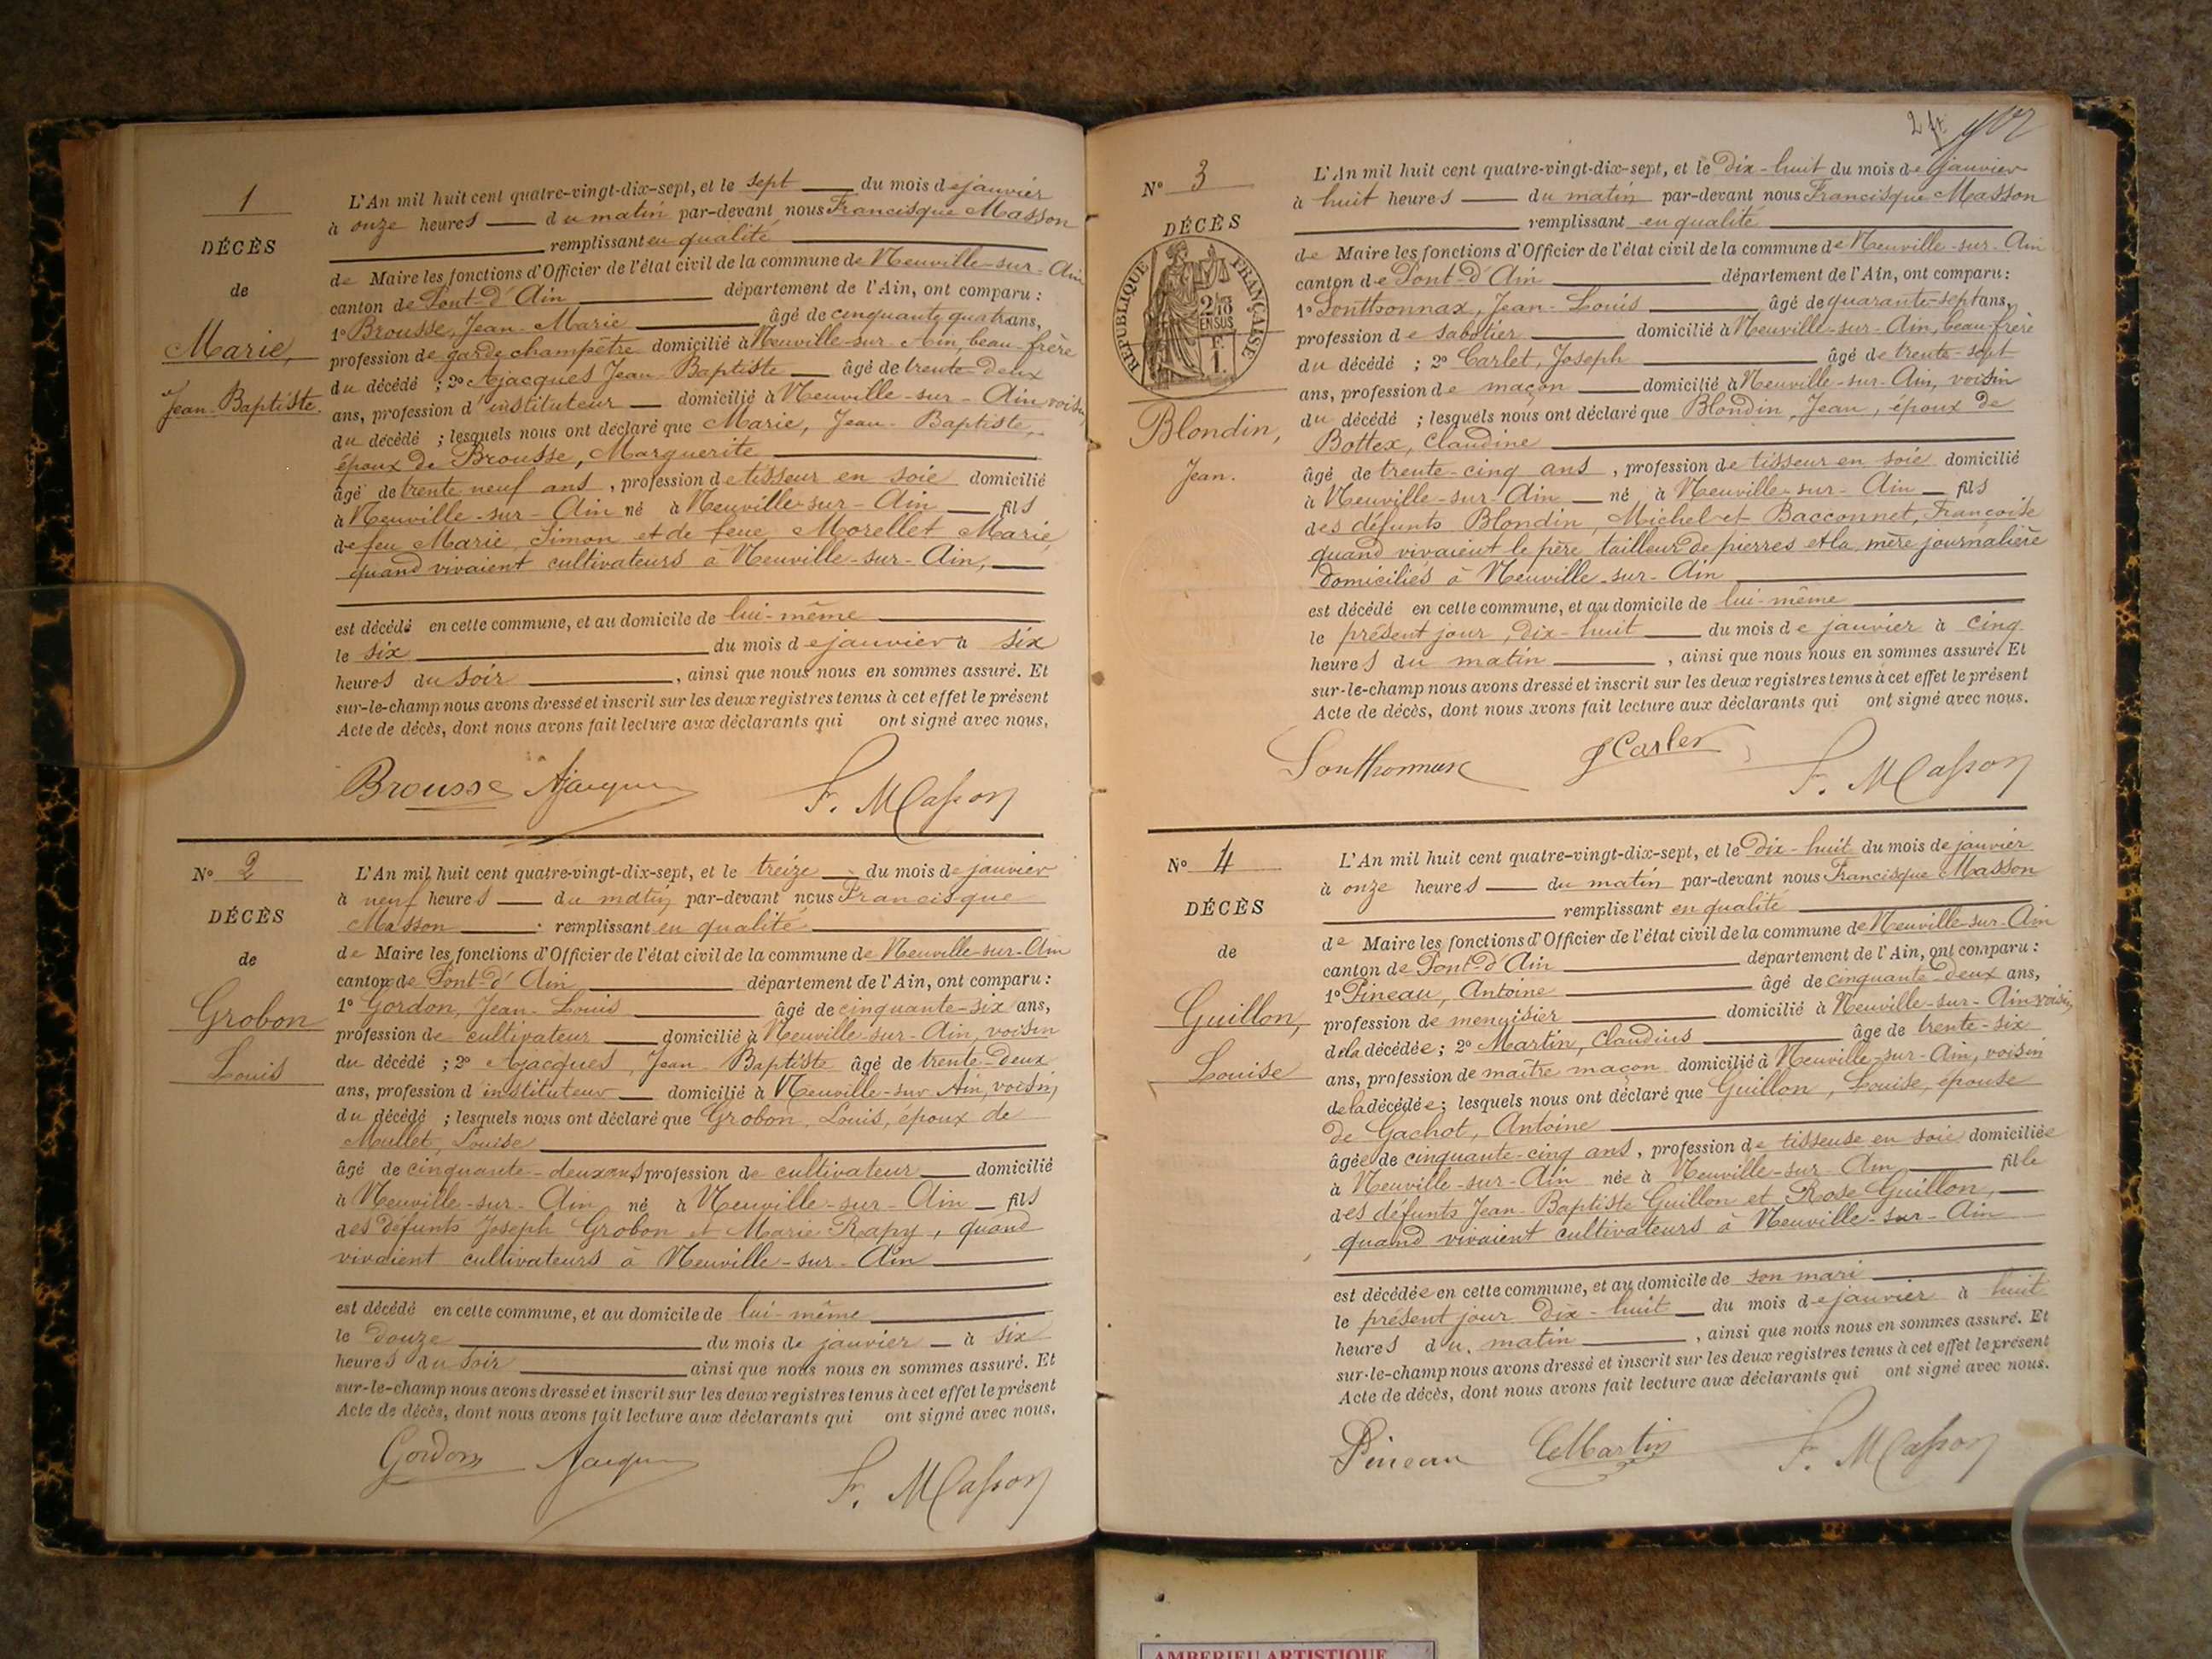 1
DÉCÈS
de
Marie,
Jean-Baptiste.
L'An mil huit cent quatre-vingt-dix-sept, et le sept du mois de janvier
à onze heures du matin par-devant nous Francisque Masson
remplissant en qualité
de Maire les fonctions d'Officier de l'état civil de la commune de Neuville-sur-Ain
canton de Pont-d'Ain département de l'Ain, ont comparu :
1º Brousse, Jean-Marie âgé de cinquante quatre ans,
profession de garde champêtre domicilié à Neuville-sur-Ain, beau-frère
du décédé ; 2º Ajacques Jean-Baptiste âgé de trente-deux
ans, profession d'instituteur domicilié à Neuville-sur-Ain voisin,
du décédé ; lesquels nous ont déclaré que Marie, Jean-Baptiste,
époux de Brousse, Marguerite
âgé de trente neuf ans, profession de tisseur en soie domicilié
à Neuville-sur-Ain né à Neuville-sur-Ain fils
de feu Marie, Simon et de feue, Morellet Marie,
quand vivaient cultivateurs à Neuville-sur-Ain,
est décédé en cette commune, et au domicile de lui-même
le six du mois de janvier à six
heures du soir, ainsi que nous nous en sommes assuré. Et
sur-le-champ nous avons dressé et inscrit sur les deux registres tenus à cet effet le présent
Acte de décès, dont nous avons fait lecture aux déclarants qui ont signé avec nous,
Brousse Ajacques F. Masson
Nº 2
DÉCÈS
de
Grobon
Louis
L'An mil huit cent quatre-vingt-dix-sept, et le treize du mois de janvier
à neuf heures du matin, par-devant nous Francisque
Masson remplissant en qualité
de Maire les fonctions d'Officier de l'état civil de la commune de Neuville-sur-Ain
canton de Pont-d'Ain département de l'Ain, ont comparu :
1º Gordon, Jean-Louis âgé de cinquante-six ans,
profession de cultivateur domicilié à Neuville-sur-Ain, voisin
du décédé ; 2º Ajacques, Jean-Baptiste âgé de trente-deux
ans, profession d'instituteur domicilié à Neuville-sur Ain, voisin,
du décédé ; lesquels nous ont déclaré que Grobon, Louis, époux de
Mullet, Louise
âgé de cinquante-deux ans, profession de cultivateur domicilié
à Neuville-sur-Ain né à Neuville-sur-Ain fils
des défunts Joseph Grobon et Marie Rapy, quand
vivaient cultivateurs à Neuville-sur-Ain
est décédé en cette commune, et au domicile de lui-même
le douze du mois de janvier à six
heures du soir ainsi que nous nous en sommes assuré. Et
sur-le-champ nous avons dressé et inscrit sur les deux registres tenus à cet effet le présent
Acte de décès, dont nous avons fait lecture aux déclarants qui ont signé avec nous.
Gordon Ajacques F. Masson
Nº 3
DÉCÈS
RÉPUBLIQUE FRANÇAISE
2/10 EN SUS
F. 1.
Blondin,
Jean.
L'An mil huit cent quatre-vingt-dix-sept, et le dix-huit du mois de janvier
à huit heures du matin par-devant nous Francisque Masson
remplissant en qualité
de Maire les fonctions d'Officier de l'état civil de la commune de Neuville-sur-Ain
canton de Pont-d'Ain département de l'Ain, ont comparu :
1º Sonthonnax, Jean-Louis âgé de quarante-sept ans,
profession de sabotier domicilié à Neuville-sur-Ain, beau-frère
du décédé ; 2º Carlet, Joseph âgé de trente-sept
ans, profession de maçon domicilié à Neuville-sur-Ain, voisin
du décédé ; lesquels nous ont déclaré que Blondin, Jean, époux de
Bottex, Claudine
âgé de trente-cinq ans, profession de tisseur en soie domicilié
à Neuville-sur-Ain né à Neuville-sur-Ain fils
des défunts Blondin, Michel et Bacconnet, Françoise
quand vivaient le père tailleur de pierres et la mère journalière
domiciliés à Neuville-sur-Ain
est décédé en cette commune, et au domicile de lui-même
le présent jour, dix-huit du mois de janvier à cinq
heures du matin, ainsi que nous nous en sommes assuré. Et
sur-le-champ nous avons dressé et inscrit sur les deux registres tenus à cet effet le présent
Acte de décès, dont nous avons fait lecture aux déclarants qui ont signé avec nous.
Sonthonnax J Carlet F. Masson
Nº 4
DÉCÈS
de
Guillon,
Louise
L'An mil huit cent quatre-vingt-dix-sept, et le dix-huit du mois de janvier
à onze heures du matin par-devant nous Francisque Masson
remplissant en qualité
de Maire les fonctions d'Officier de l'état civil de la commune de Neuville-sur-Ain
canton de Pont-d'Ain département de l'Ain, ont comparu :
1º Pineau, Antoine âgé de cinquante-deux ans,
profession de menuisier domicilié à Neuville-sur-Ain voisin,
de la décédée ; 2º Martin, Claudius âgé de trente-six
ans, profession de maître maçon domicilié à Neuville-sur-Ain, voisin
de la décédée ; lesquels nous ont déclaré que Guillon, Louise, épouse
de Gachot, Antoine
âgée de cinquante-cinq ans, profession de tisseuse en soie domiciliée
à Neuville-sur-Ain née à Neuville-sur-Ain fille
des défunts Jean-Baptiste Guillon et Rose Guillon,
quand vivaient cultivateurs à Neuville-sur-Ain
est décédée en cette commune, et au domicile de son mari
le présent jour dix-huit du mois de janvier à huit
heures du matin, ainsi que nous nous en sommes assuré. Et
sur-le-champ nous avons dressé et inscrit sur les deux registres tenus à cet effet le présent
Acte de décès, dont nous avons fait lecture aux déclarants qui ont signé avec nous.
Pineau Cl Martin F. Masson
AMBERIEU ARTISTIQUE